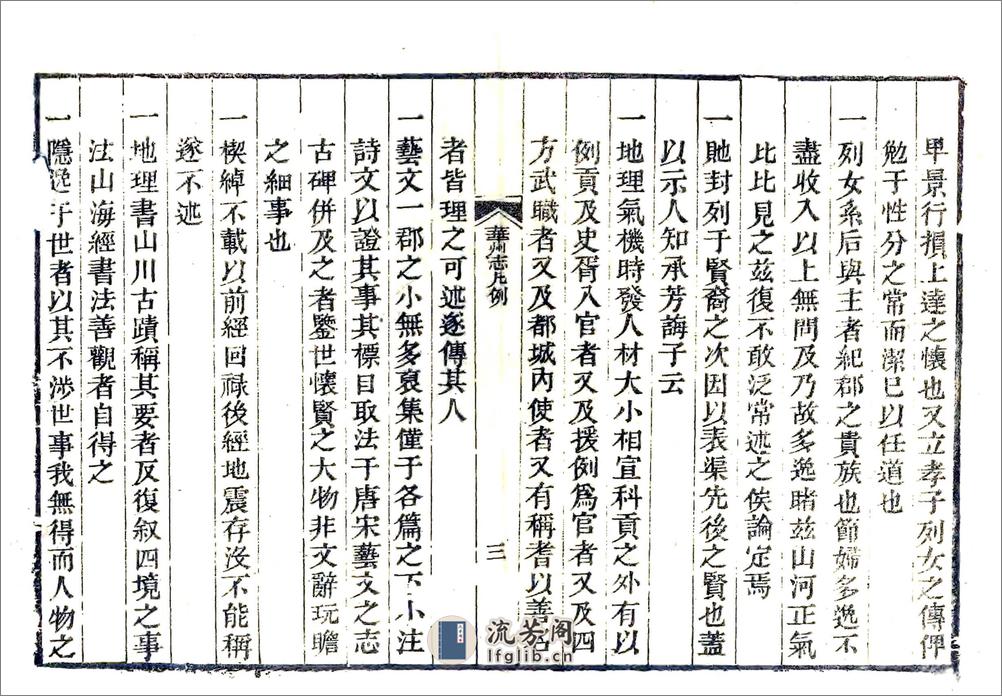 畢景行損上達之懷也又立孝子列女之傳俾
勉于性分之常而潔巳以任道也
一列女系后與王者紀郡之貴族也節婦多逸不
盡收入以上無間及乃故多逸睹玆山河正氣
比比見之玆復不敢泛常述之俟論定焉
一貤封列于賢裔之次因以表渠先後之賢也蓋
以示人知承芳誨子云
一地理氣機時發人材大小相宣科貢之外有以
例貢及史胥入官者又及援例爲官者又及四
方武職者又及都城內使者又有稱耆以善治
華州志凡例 三
者皆理之可述遂傳其人
一藝文一郡之小無多裒集僅于各篇之下小注
詩文以證其事其標目取法于唐宋藝文之志
古碑併及之者鑒世懷賢之大物非文辭玩瞻
之細事也
一楔綽不載以前經回祿後經地震存沒不能稱
遂不述
一地理書山川古蹟稱其要者反復叙四境之事
法山海經書法善觀者自得之
一隱逸于世者以其不涉世事我無得而人物之
流芳阁
lfglib.cn